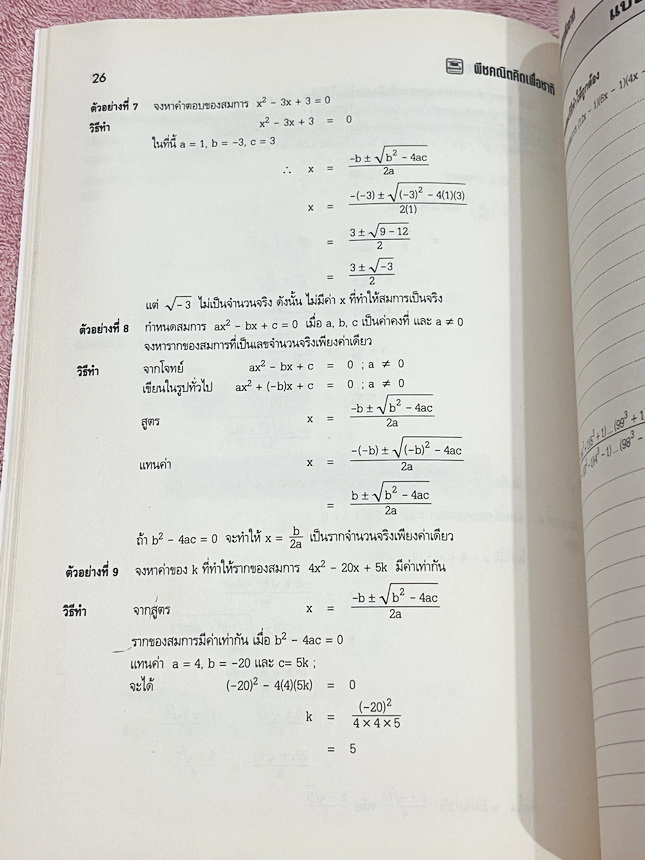 26
พีชคณิตคิดเพื่อชาติ
ตัวอย่างที่ 7 จงหาคำตอบของสมการ x² − 3x + 3 = 0
วิธีทำ x² − 3x + 3 = 0
ในที่นี้ a = 1, b = −3, c = 3
∴ x = (-b ± √(b² − 4ac)) / 2a
x = (−(−3) ± √((−3)² − 4(1)(3))) / 2(1)
= (3 ± √(9 − 12)) / 2
= (3 ± √−3) / 2
แต่ √−3 ไม่เป็นจำนวนจริง ดังนั้น ไม่มีค่า x ที่ทำให้สมการเป็นจริง
ตัวอย่างที่ 8 กำหนดสมการ ax² − bx + c = 0 เมื่อ a, b, c เป็นค่าคงที่ และ a ≠ 0
จงหารากของสมการที่เป็นเลขจำนวนจริงเพียงค่าเดียว
วิธีทำ จากโจทย์ ax² − bx + c = 0 ; a ≠ 0
เขียนในรูปทั่วไป ax² + (−b)x + c = 0 ; a ≠ 0
สูตร x = (−b ± √(b² − 4ac)) / 2a
แทนค่า x = (−(−b) ± √((−b)² − 4ac)) / 2a
= (b ± √(b² − 4ac)) / 2a
ถ้า b² − 4ac = 0 จะทำให้ x = b/2a เป็นรากจำนวนจริงเพียงค่าเดียว
ตัวอย่างที่ 9 จงหาค่าของ k ที่ทำให้รากของสมการ 4x² − 20x + 5k มีค่าเท่ากัน
วิธีทำ จากสูตร x = (−b ± √(b² − 4ac)) / 2a
รากของสมการมีค่าเท่ากัน เมื่อ b² − 4ac = 0
แทนค่า a = 4, b = −20 และ c= 5k ;
จะได้ (−20)² − 4(4)(5k) = 0
k = (−20)² / 4 × 4 × 5
= 5